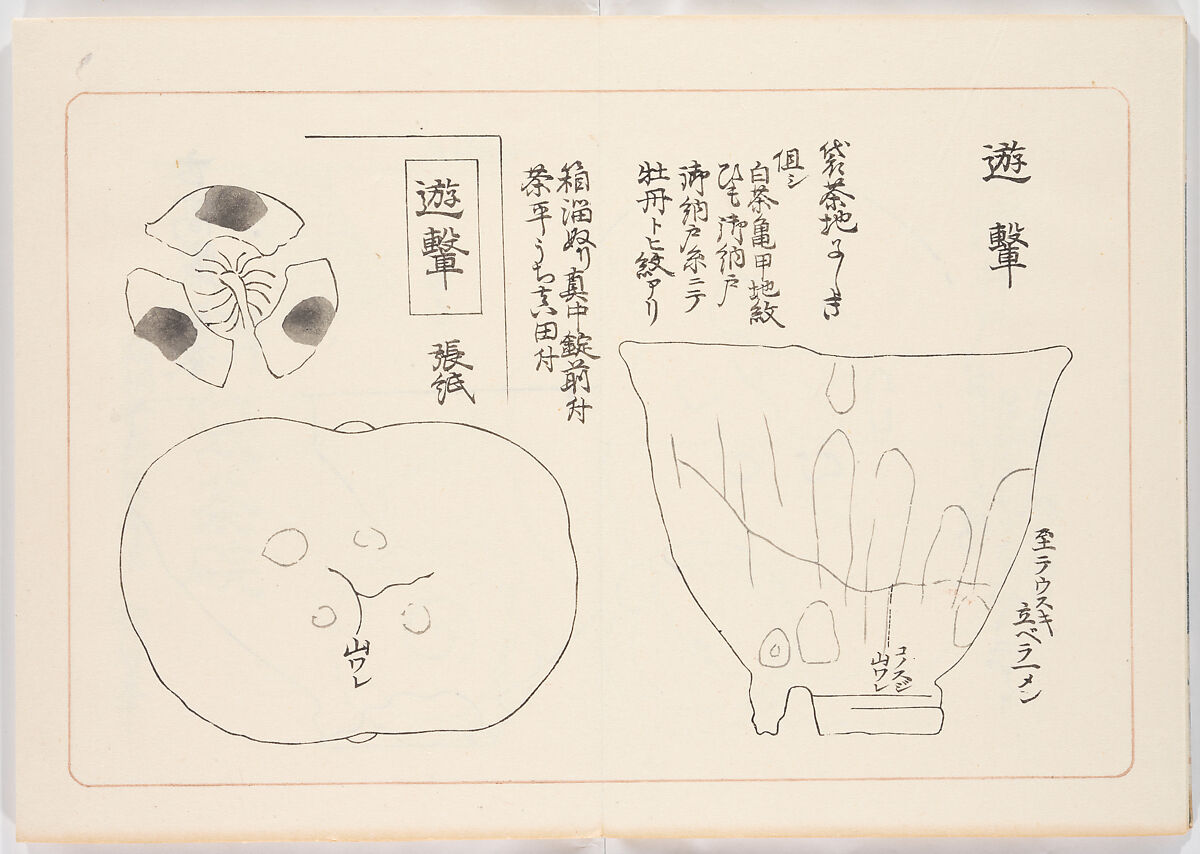 遊撃
袋茶地よしき
但シ
白茶亀甲地紋
ひも御納戸
御納戸糸ニテ
牡丹ト匕紋アリ
至テウスキ
立ベラ一メン
コノスジ
山ワレ
箱溜ぬり真中錠前付
茶平うち真田付
遊撃
張紙
山ワレ